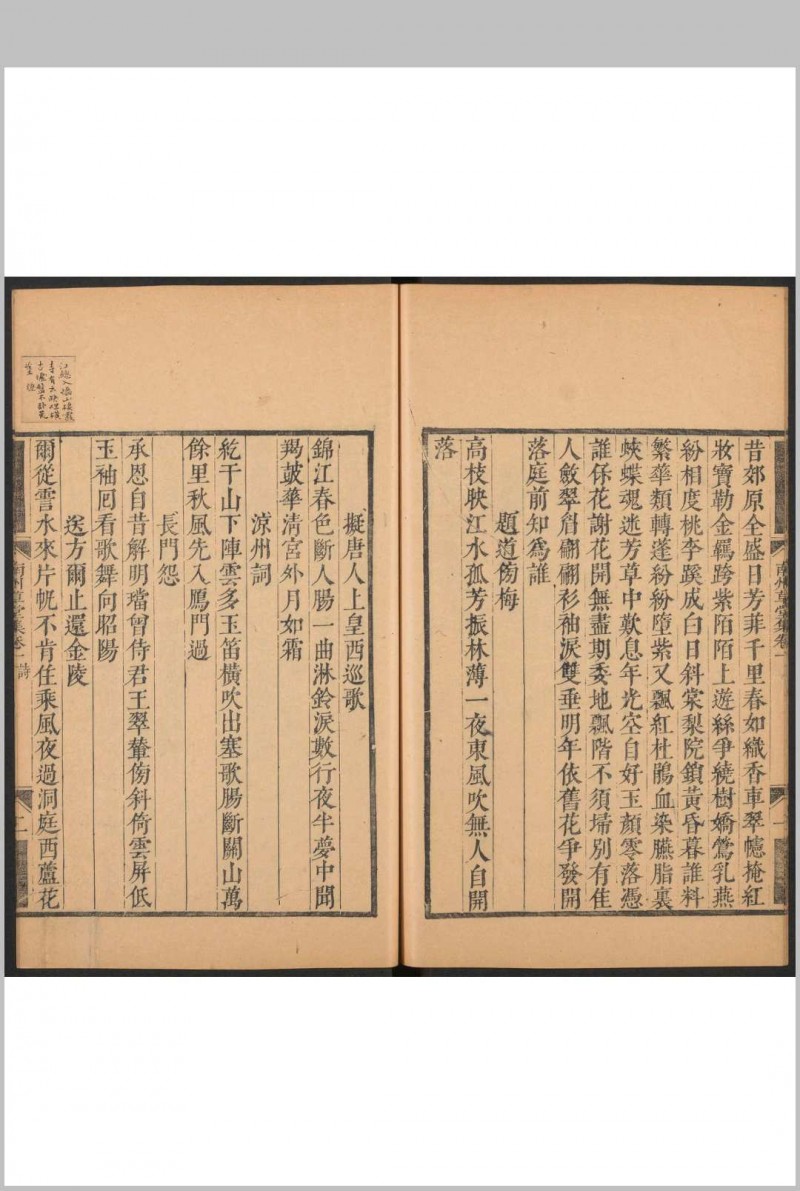 昔郊原全盛日芳菲千里春如織香車翠幰掩紅
妝寶勒金羈跨紫陌陌上遊絲爭繞樹嬌鶯乳燕
紛相度桃李蹊成白日斜棠梨院鎖黃昏暮誰料
繁華類轉蓬紛紛墮紫又飄紅杜鵑血染臙脂裏
蛺蝶魂迷芳草中歎息年光空自好玉顏零落憑
誰保花謝花開無盡期委地飄階不須埽別有佳
人斂翠眉翩翩衫袖淚雙垂明年依舊花爭發開
落庭前知爲誰
題道傍梅
高枝映江水孤芳振林薄一夜東風吹無人自開
落
南州草堂集卷一
擬唐人上皇西巡歌
錦江春色斷人腸一曲淋鈴淚數行夜半夢中聞
羯鼓華清宮外月如霜
涼州詞
紇干山下陣雲多玉笛橫吹出塞歌腸斷關山萬
餘里秋風先入鴈門過
長門怨
承恩自昔解明璫曾侍君王翠輦傍斜倚雲屏低
玉袖囘看歌舞向昭陽
送方爾止還金陵
爾從雪水來片帆不肯住乘風夜過洞庭西蘆花
南州草堂集卷一 詩
二